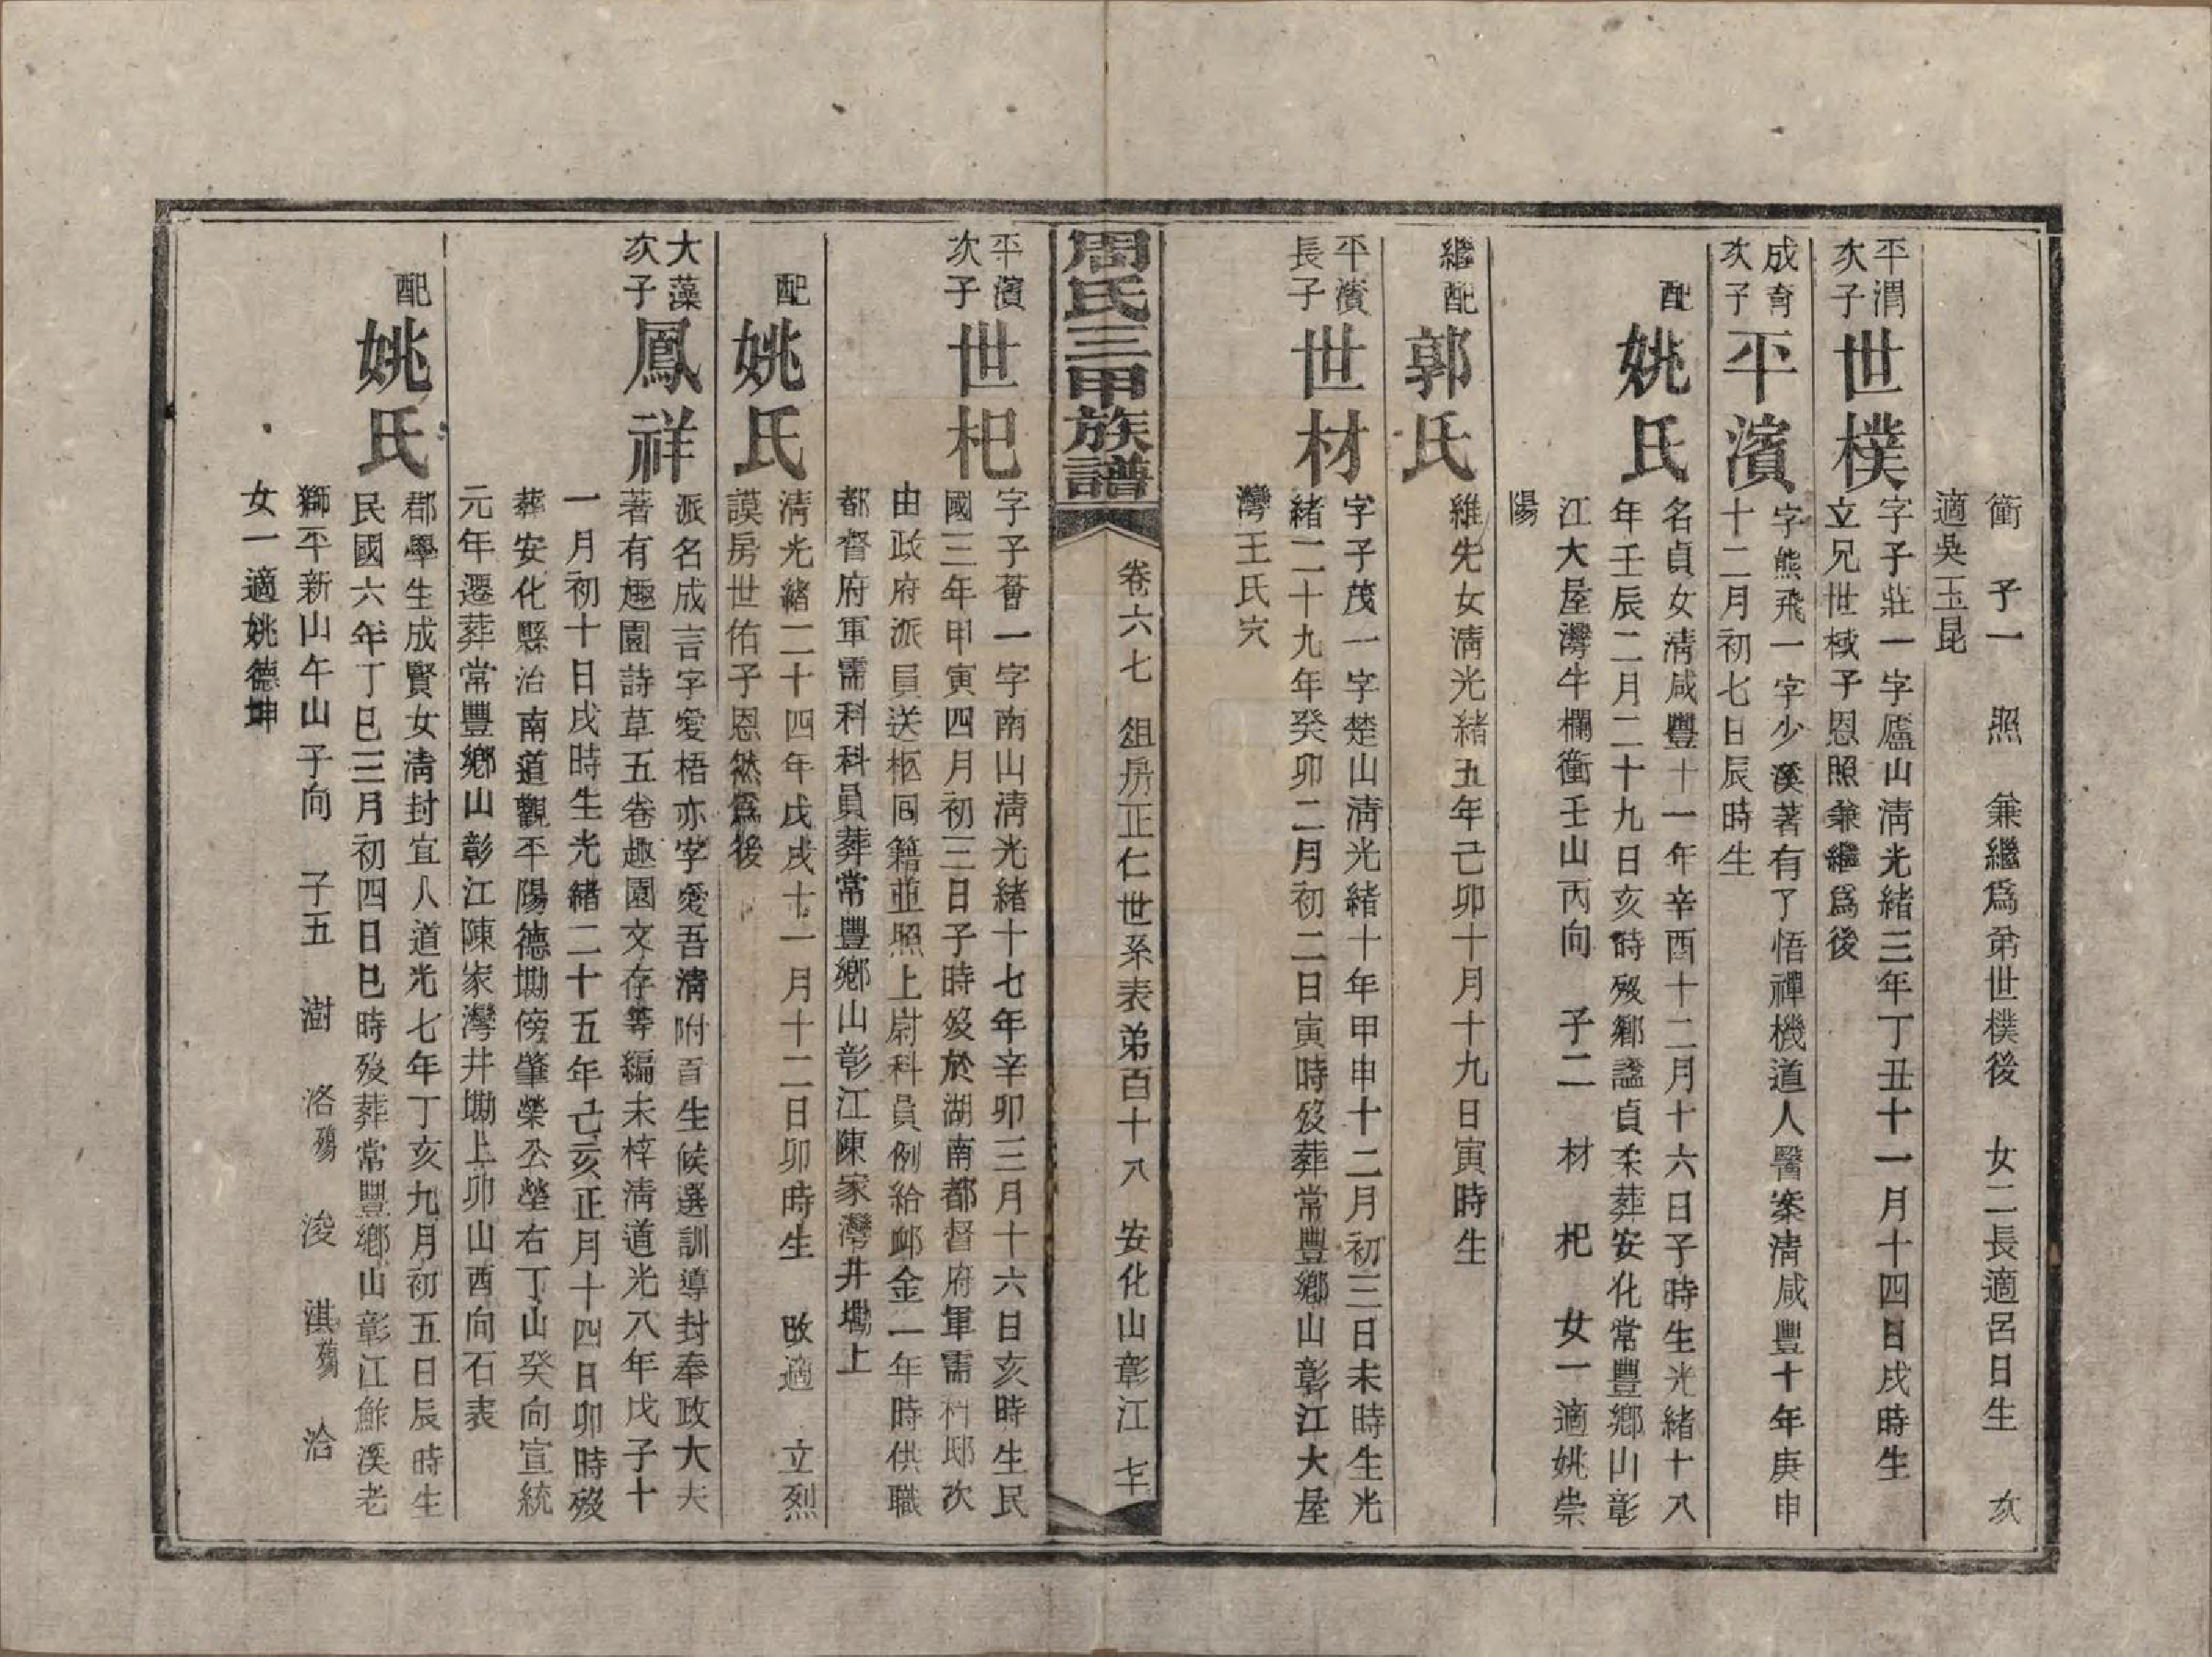 衝　子一　照　兼繼爲弟世樸後　女二長適呂日生　次
適吳玉昆
平渭
次子
世樸
字子莊一字廬山清光緒三年丁丑十一月十四日戌時生
立兄世棫子恩照兼繼爲後
成育
次子
平濱
字熊飛一字少溪著有了悟禪機道人醫案清咸豐十年庚申
十二月初七日辰時生
配
姚氏
名貞女清咸豐十一年辛酉十二月十六日子時生光緒十八
年壬辰二月二十九日亥時歿鄉諡貞柔葬安化常豐鄉山彰
江大屋灣牛欄衝壬山丙向　子二　材　杞　女一適姚崇
陽
繼配
郭氏
維先女清光緒五年己卯十月十九日寅時生
平濱
長子
世材
字子茂一字楚山清光緒十年甲申十二月初三日未時生光
緒二十九年癸卯二月初二日寅時歿葬常豐鄉山彰江大屋
灣王氏穴
周氏三甲族譜
卷六七　俎房正仁世系表弟百十八　安化山彰江　七十
平濱
次子
世杞
字子薈一字南山清光緒十七年辛卯三月十六日亥時生民
國三年甲寅四月初三日子時歿於湖南都督府軍需科邸次
由政府派員送柩囘籍並照上尉科員例給卹金一年時供職
都督府軍需科科員葬常豐鄉山彰江陳家灣井墈上
配
姚氏
清光緒二十四年戊戌十一月十二日卯時生　改適　立烈
謨房世佑子恩然爲後
大藻
次子
鳳祥
派名成言字愛梧亦字愛吾清附貢生候選訓導封奉政大夫
著有趣園詩草五卷趣園文存等編未梓清道光八年戊子十
一月初十日戌時生光緒二十五年己亥正月十四日卯時歿
葬安化縣治南道觀平陽德墈傍肇榮公塋右丁山癸向宣統
元年遷葬常豐鄉山彰江陳家灣井墈上卯山酉向石表
配
姚氏
郡學生成賢女清封宜人道光七年丁亥九月初五日辰時生
民國六年丁巳三月初四日巳時歿葬常豐鄉山彰江鮓溪老
獅平新山午山子向　子五　澍　洛殤　浚　淇殤　洽
女一適姚德坤